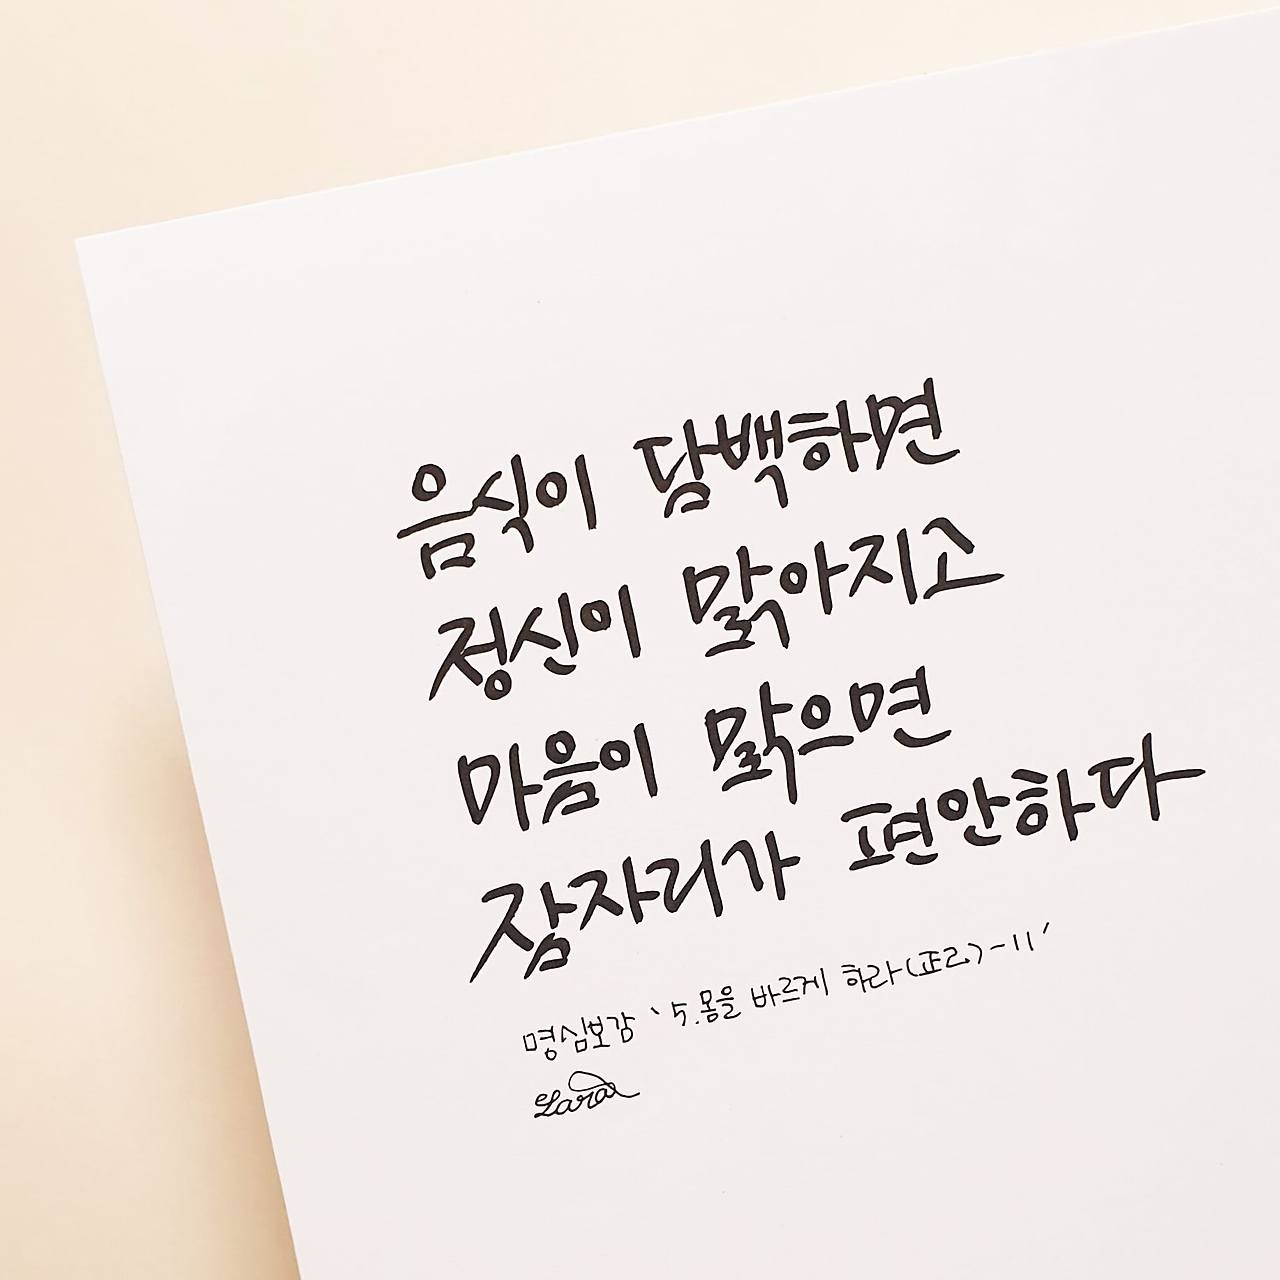 음식이 담백하면
정신이 맑아지고
마음이 맑으면
잠자리가 편안하다
명심보감 '5.몸을 바르게 하라(正己)-11'
Lara